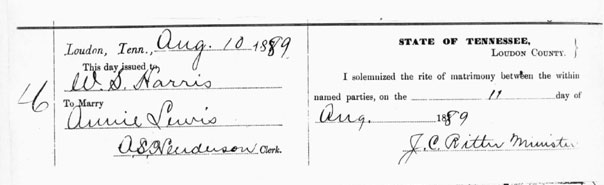 Loudon, Tenn., Aug. 10 1889
This day issued to
W. S. Harris
To Marry
Annie Lewis
A.S. Henderson Clerk.
46
STATE OF TENNESSEE,
LOUDON COUNTY.
I solemnized the rite of matrimony between the within
named parties, on the 11 day of
Aug. 1889
J. C. Ritter Minister